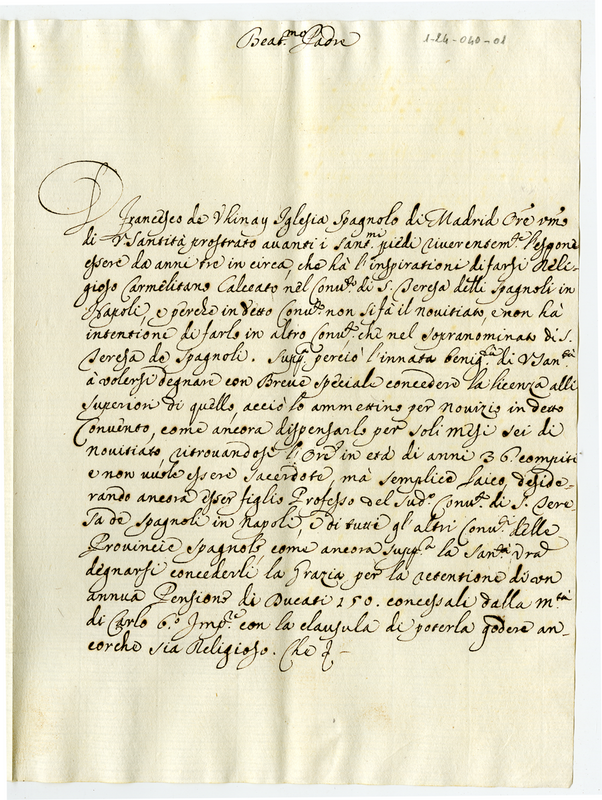 Beat.mo Padre
1-24-040-01
D Francesco de Vhinay Iglesia Spagnolo di Madrid Ore vmo
di V Santità prostrato auanti i Sant.mi piedi riuerentem.te l'espone
essere da anni tre in circa, che hà l'inspirationi di farsi Reli-
gioso Carmelitano Calceato nel Conu.to di S. Teresa delli Spagnoli in
Napoli, e perche in detto Conu.to non si fà il nouitiato, e non hà
intentione di farlo in altro Conu.to che nel sopranominato di S.
Teresa de Spagnoli. Supp.ca perciò l'innata benig.tà di V San.tà
à volersi degnare con Breue speciale concedere la licenza alli
Superiori di quello, acciò lo ammettino per Nouizio in detto
Conuento, come ancora dispensarlo per soli mesi sei di
nouitiato, ritrouandosi l'Ore in età di anni 36 compiti
e non vuole essere Sacerdote, mà semplice Laico, deside-
rando ancora esser figlio Professo del Sud.o Conu.to di S. Tere-
sa de Spagnoli in Napoli, e di tutte gl'altri Conu.ti delle
Prouincie Spagnole, come ancora supp.ca la San.tà Vra
degnarsi concederli la Grazia per la retentione di vn
annua Pensione di Ducati 150. concessali dalla M.tà
di Carlo 6.o Imp.re con la clausula di poterla godere an-
corche sia Religioso. Che